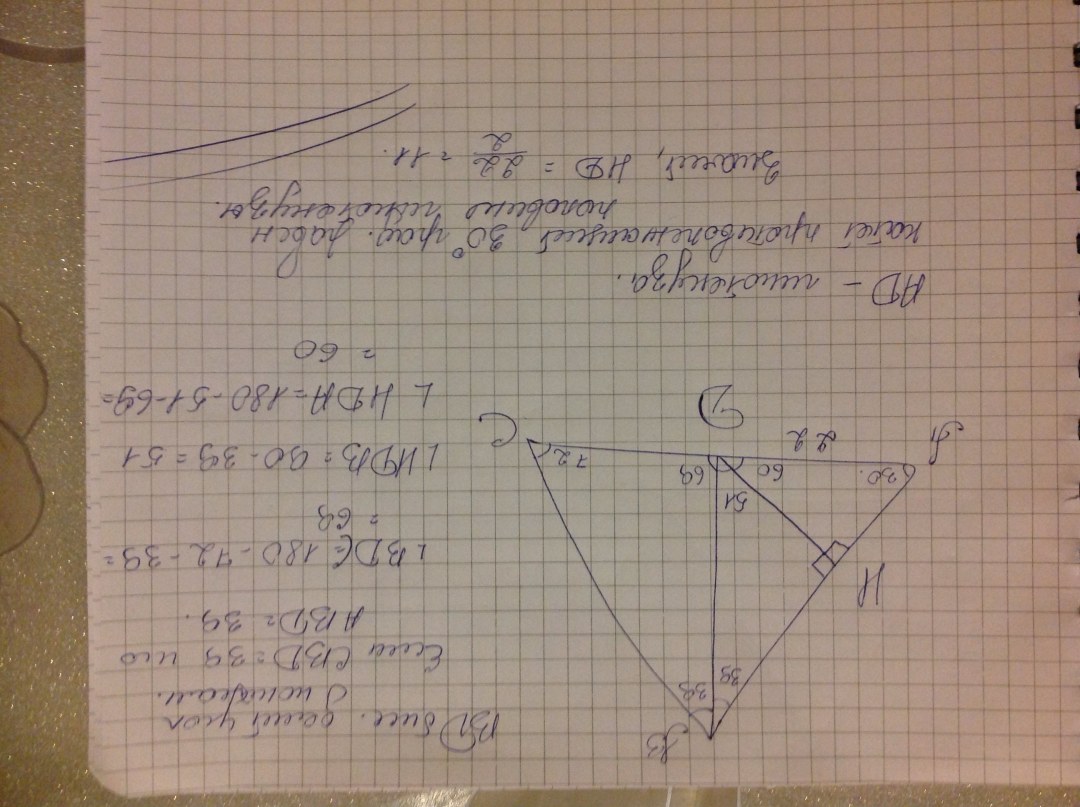 BD бисс. делит угол
пополам.
Если CBD = 39 то
HBD = 39.
∟BDC = 180 - 72 - 39 =
= 69
∟HDB = 90 - 39 = 51
∟HDA = 180 - 51 - 69 =
= 60
AD - гипотенуза.
катет противолежащий 30° град. равен
половине гипотенузы.
Значит, HD = 22/2 = 11.
B
39 39
H
51
69
60
30.
22
72
A
D
C